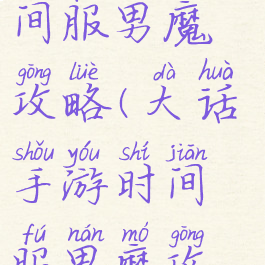 间服男魔
gōng lüè dà huà
攻略(大话
shǒu yóu shí jiān
手游时间
fú nán mó gōng
服男魔攻